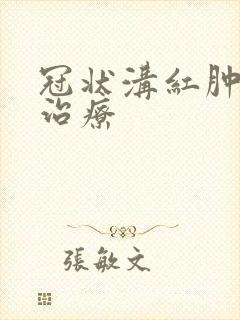 冠状溝紅肿
治療
張敏文